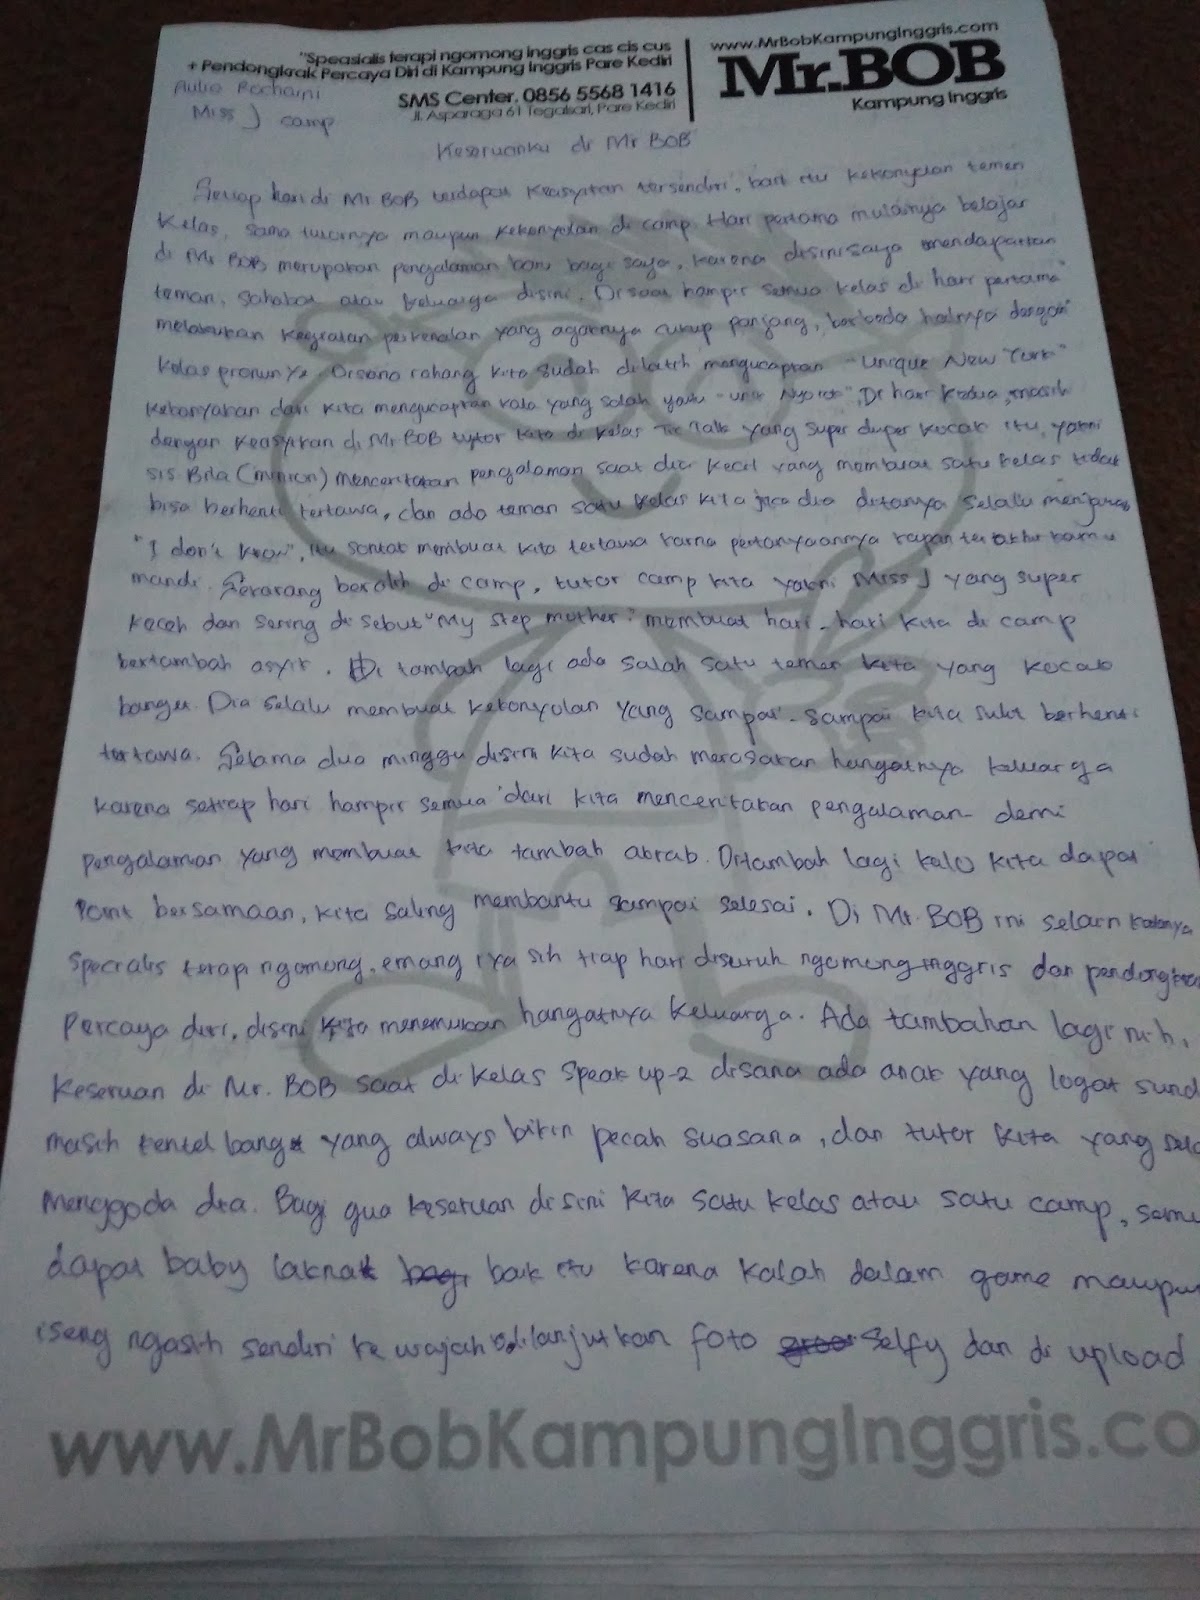 "Speasialis terapi ngomong inggris cas cis cus
+ Pendongkrak Percaya Diri di Kampung Inggris Pare Kediri
SMS Center. 0856 5568 1416
Jl. Asparaga 61 Tegalsari, Pare Kediri
www.MrBobKampungInggris.com
Mr.BOB
Kampung Inggris
Aulia Rochaini
Miss J camp
Keseruanku di Mr BOB
Setiap hari di Mr BOB terdapat keasyikan tersendiri, baik itu kekonyolan temen
kelas, sama tutornya maupun kekonyolan di camp. Hari pertama mulainya belajar
di Mr BOB merupakan pengalaman baru bagi saya, karena disini saya mendapatkan
teman, sahabat atau keluarga disini. Disaat hampir semua kelas di hari pertama
melakukan kegiatan perkenalan yang agaknya cukup panjang, berbeda halnya dengan
kelas pronun Disana rahang kita sudah dilatih mengucapkan "Unique New York"
kebanyakan dari kita mengucapkan kata yang salah yaitu Di hari kedua, masih
dengan keasyikan di Mr BOB tutor kita di kelas Talk yang super duper kocak itu, yakni
sis Bila (minion) menceritakan pengalaman saat dia kecil yang membuat satu kelas tidak
bisa berhenti tertawa, dan ada teman satu kelas kita jika dia ditanya selalu menjawab
"I don't know", itu sontak membuat kita tertawa karna pertanyaannya kapan terakhir kamu
mandi. Sekarang beralih di camp, tutor camp kita yakni Miss J yang super
keceh dan sering di sebut "My step mother" membuat hari-hari kita di camp
bertambah asyik. Di tambah lagi ada salah satu temen kita yang kocak
banget. Dia selalu membuat kekonyolan yang sampai-sampai kita sulit berhenti
tertawa. Selama dua minggu disini kita sudah merasakan hangatnya keluarga
karena setiap hari hampir semua dari kita menceritakan pengalaman demi
pengalaman yang membuat kita tambah akrab. Ditambah lagi kalo kita dapat
point bersamaan, kita saling membantu sampai selesai. Di Mr. BOB ini selain katanya
specialis terapi ngomong, emang iya sih tiap hari disuruh ngomong inggris dan pendongkrak
percaya diri, disini kita menemukan hangatnya keluarga. Ada tambahan lagi nih,
keseruan di Mr. BOB saat di kelas speak up-2 disana ada anak yang logat sund
masih kentel banget yang always bikin pecah suasana, dan tutor kita yang sela
menggoda dia. Bagi gua keseruan disini kita satu kelas atau satu camp, semu
dapat baby laknat baik itu karena kalah dalam game maupun
iseng ngasih sendiri ke wajah dilanjutkan foto selfy dan di upload
www.MrBobKampungInggris.co